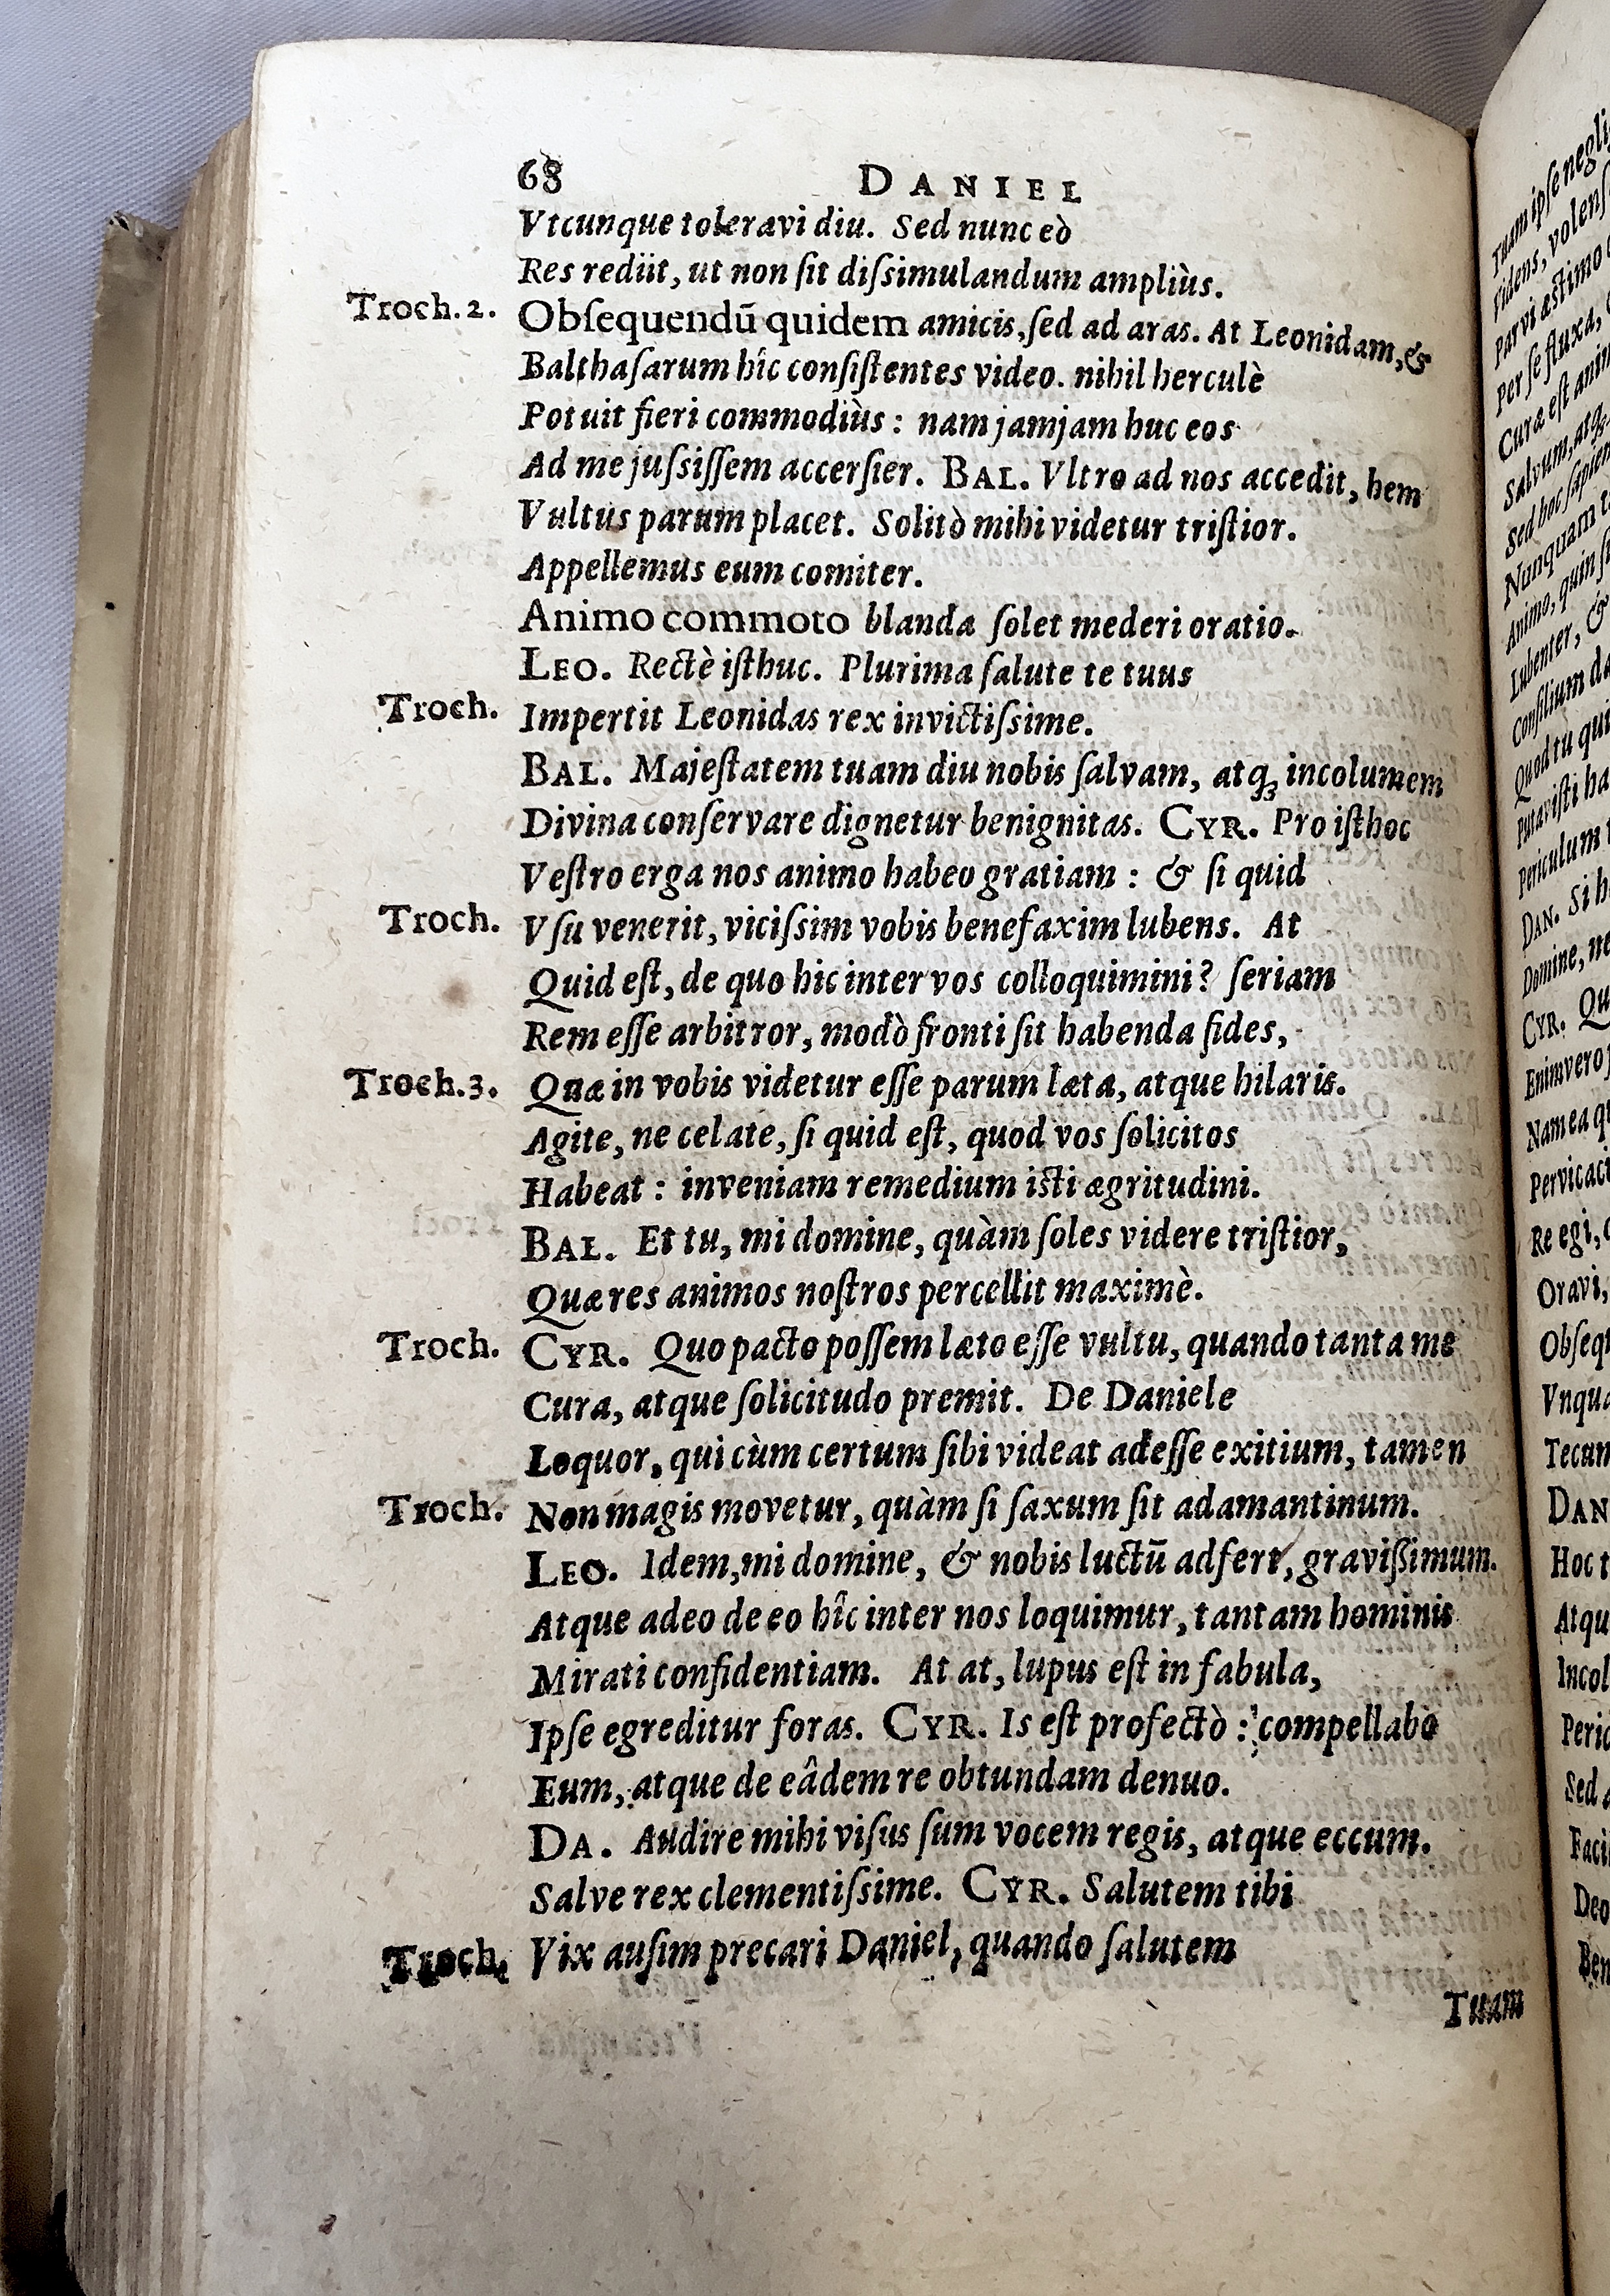 68 DANIEL
Vtcunque toleravi diu. Sed nunc eò
Res rediit, ut non ſit diſsimulandum ampliùs.
Troch. 2. Obſequendū quidem amicis, ſed ad aras. At Leonidam, &
Balthaſarum hîc conſiſtentes video. nihil herculè
Potuit fieri commodiùs : nam jamjam huc eos
Ad me juſsiſſem accerſier. BAL. Vltro ad nos accedit, hem
Vultus parum placet. Solitò mihi videtur triſtior.
Appellemus eum comiter.
Animo commoto blanda ſolet mederi oratio.
LEO. Rectè iſthuc. Plurima ſalute te tuus
Troch. Impertit Leonidas rex invictiſsime.
BAL. Majeſtatem tuam diu nobis ſalvam, atq; incolumem
Divina conſervare dignetur benignitas. CYR. Pro iſthoc
Veſtro erga nos animo habeo gratiam : & ſi quid
Troch. Vſu venerit, viciſsim vobis benefaxim lubens. At
Quid eſt, de quo hic inter vos colloquimini? ſeriam
Rem eſſe arbitror, modò fronti ſit habenda fides,
Troch. 3. Quæ in vobis videtur eſſe parum læta, atque hilaris.
Agite, ne celate, ſi quid eſt, quod vos ſolicitos
Habeat : inveniam remedium iſti ægritudini.
BAL. Et tu, mi domine, quàm ſoles videre triſtior,
Quæ res animos noſtros percellit maximè.
Troch. CYR. Quo pacto poſſem læto eſſe vultu, quando tanta me
Cura, atque ſolicitudo premit. De Daniele
Loquor, qui cùm certum ſibi videat adeſſe exitium, tamen
Troch. Non magis movetur, quàm ſi ſaxum ſit adamantinum.
LEO. Idem, mi domine, & nobis luctū adfert, graviſsimum.
Atque adeo de eo hîc inter nos loquimur, tantam hominis
Mirati confidentiam. At at, lupus eſt in fabula,
Ipſe egreditur foras. CYR. Is eſt profectò : compellabo
Eum, atque de eâdem re obtundam denuo.
DA. Audire mihi viſus ſum vocem regis, atque eccum.
Salve rex clementiſsime. CYR. Salutem tibi
Troch. Vix auſim precari Daniel, quando ſalutem
Tuam
Tuam ipſe negli
Videns, volens
Parvi æſtimo
Per ſe fluxa,
Curæ eſt anim
Salvum, atq;
Sed hoc ſapien
Nunquam t
Animo, quin ſ
Lubenter, &
Conſilium da
Quod tu qui
Putaviſti ha
Periculum
DAN. Si h
Domine, ne
CYR. Qu
Enimvero
Nam ea q
Pervicaci
Re egi,
Oravi,
Obſeq
Vnqua
Tecum
DAN
Hoc t
Atqu
Incol
Peric
Sed
Faci
Deo
Ben